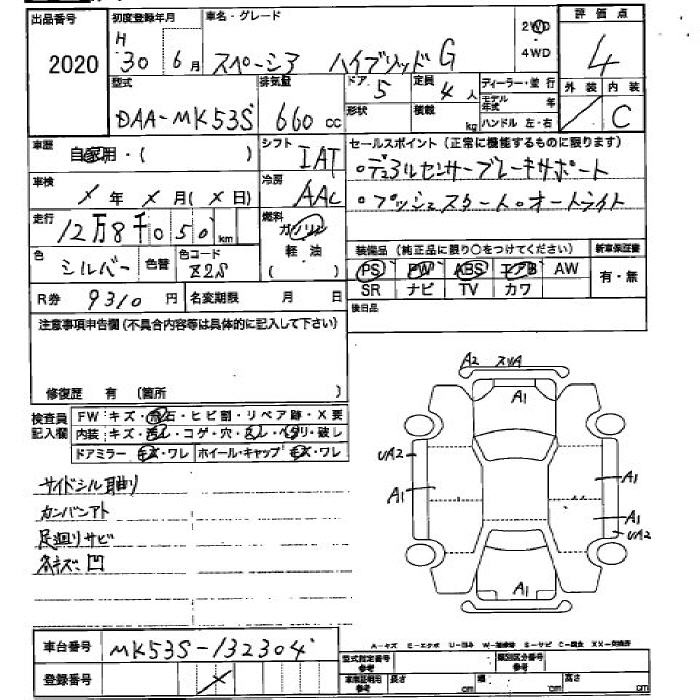 出品番号 初度登録年月 車名・グレード 評価点
2020 H 30 6月 スペーシア ハイブリッドG 2WD 4WD 4
型式 排気量 ドア 5 定員 4人 ディーラー・並行 外装 内装
DAA-MK53S 660cc 形状 積載 kg モデル年式 年 C
ハンドル 左・右
車歴 自家用・( ) シフト IAT セールスポイント (正常に機能するものに限ります)
車検 X年X月(X日) 冷房 AAC 。デュアルセンサーブレーキサポート
。プッシュスタート。オートライト
走行 12万8千050km 燃料 ガソリン 軽油 ( )
色 シルバー 色替 色コード Z2S
装備品 (純正品に限り○をつけてください) 新車保証書
PS PW ABS エアB AW 有・無
SR ナビ TV カワ
R券 9310円 名変期限 月 日 後日品
注意事項申告欄(不具合内容等は具体的に記入して下さい)
修復歴 有 (箇所 )
検査員記入欄 FW キズ・飛石・ヒビ割・リペア跡・X要
内装 キズ・汚レ・コゲ・穴・スレ・ヘタリ・破レ
ドアミラー キズ・ワレ ホイール・キャップ キズ・ワレ
サイドシル曲り
カンバンアト
足廻りサビ
各キズ凹
A2 スリA
A1
UA2
A1
A1
A1
UA2
A1
車台番号 MK53S-132304
登録番号 X
A-キズ E-エクボ U-ヨネ W-補修跡 S-サビ C-腐食 XX-交換済
型式指定番号 参考 類別区分番号 参考
車庫証明用 参考 長さ cm 幅 cm 高さ cm